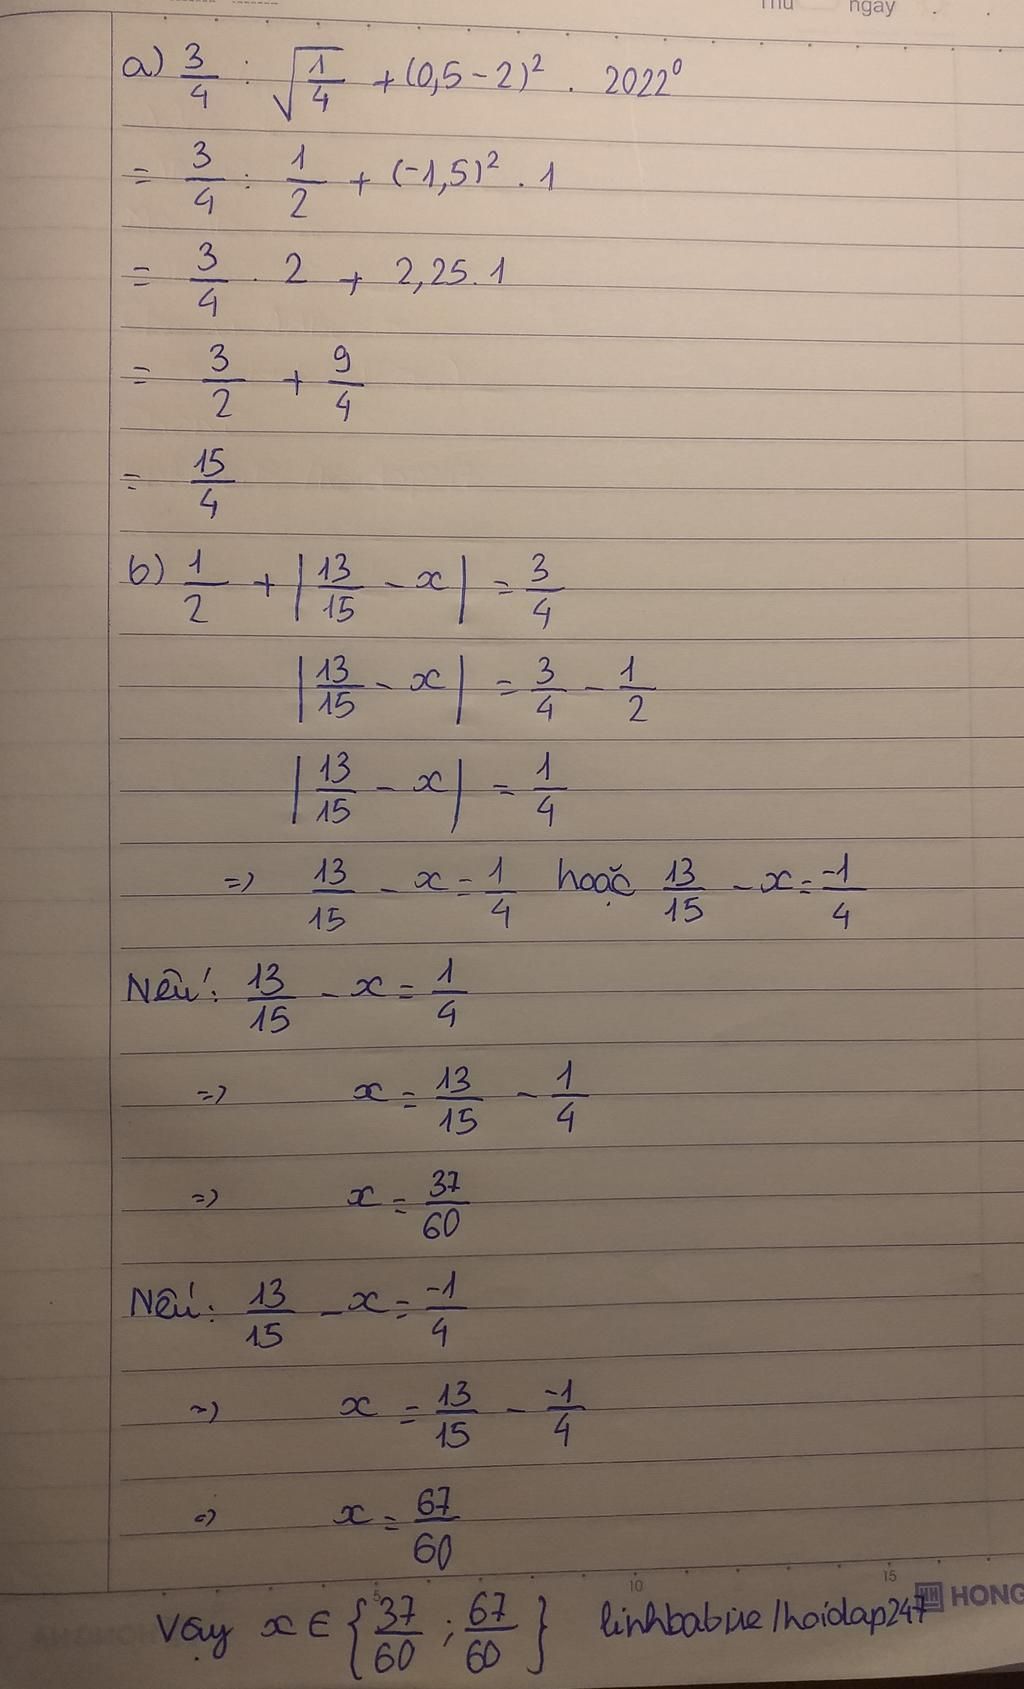 Thứ ngày
a) 3/4 : √(1/4) + (0,5 - 2)² . 2022⁰
= 3/4 : 1/2 + (-1,5)² . 1
= 3/4 . 2 + 2,25 . 1
= 3/2 + 9/4
= 15/4
b) 1/2 + |13/15 - x| = 3/4
|13/15 - x| = 3/4 - 1/2
|13/15 - x| = 1/4
=> 13/15 - x = 1/4 hoặc 13/15 - x = -1/4
Nếu: 13/15 - x = 1/4
=> x = 13/15 - 1/4
=> x = 37/60
Nếu: 13/15 - x = -1/4
=> x = 13/15 - -1/4
=> x = 67/60
5 10 15
HONG
Vậy x ∈ {37/60 ; 67/60} linhbabie/hoidap247